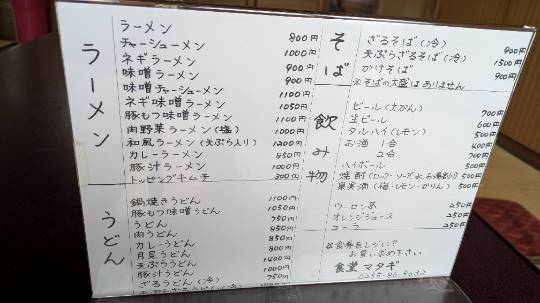 ラーメン
ラーメン 800円
チャーシューメン 1000円
ネギラーメン 900円
味噌ラーメン 900円
味噌チャーシューメン 1100円
ネギ味噌ラーメン 1050円
豚もつ味噌ラーメン 1100円
肉野菜ラーメン(塩) 1000円
和風ラーメン(天ぷら入り) 1200円
カレーラーメン 850円
豚汁ラーメン 1000円
トッピングキムチ 300円
うどん
鍋焼きうどん 1100円
豚もつ味噌うどん 1050円
うどん 750円
肉うどん 850円
カレーうどん 850円
月見うどん 800円
天ぷらうどん 1400円
豚汁うどん 1000円
ざるうどん(冷) 750円
そば
ざるそば(冷) 900円
天ぷらざるそば(冷) 1500円
かけそば 900円
※そばの大盛はありません
飲み物
ビール(大びん) 700円
生ビール 600円
タルハイ(レモン) 500円
お酒 1合 400円
2合 700円
ハイボール 500円
焼酎(ロック・ソーダ・水・お湯割り) 500円
果実酒(梅・レモン・かりん) 500円
ウーロン茶 250円
オレンジジュース 250円
コーラ 250円
※食券をレジにて
お買い求め下さい
食堂 マタギ
0255-86-5032